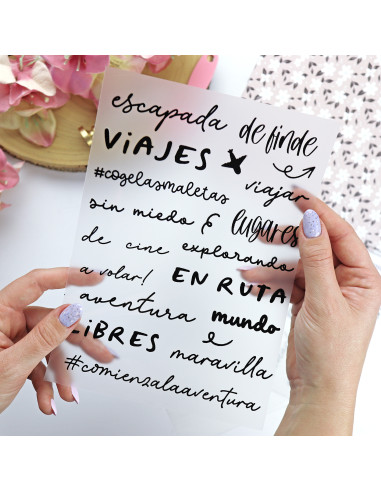 escapada de finde
VIAJES viajar
#cogelasmaletas
sin miedo lugares
de cine explorando
a volar! EN RUTA
aventura mundo
LIBRES maravilla
#comienzalaaventura